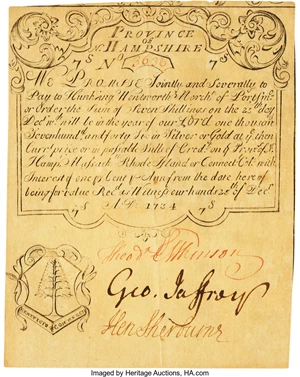 PROVINCE
OF
N. HAMPSHIRE
7S No 7S
We PROMISE Jointly and Severally to
Pay to Hunking Wentworth March.t of Portsm.o
or Order the Sum of Seven Shillings on the 25th Day
Dec.m which will be in the year of our LORD one thousand
Sevenhund.d and forty Six in Silver or Gold at ye then
Curr.t price or in passable Bills of Cred.t on ye Prov.s of N.
Hamp.r Massach Rhode Island or Connect.t Col. with
Interest of one p Cent p Ann from the date here of
being for value Rec.d Witness our hands 25th of Dec.r
7S A.D. 1734 7S
Theod. Atkinson
Geo. Jaffrey
Hen Sherburne
Imaged by Heritage Auctions, HA.com